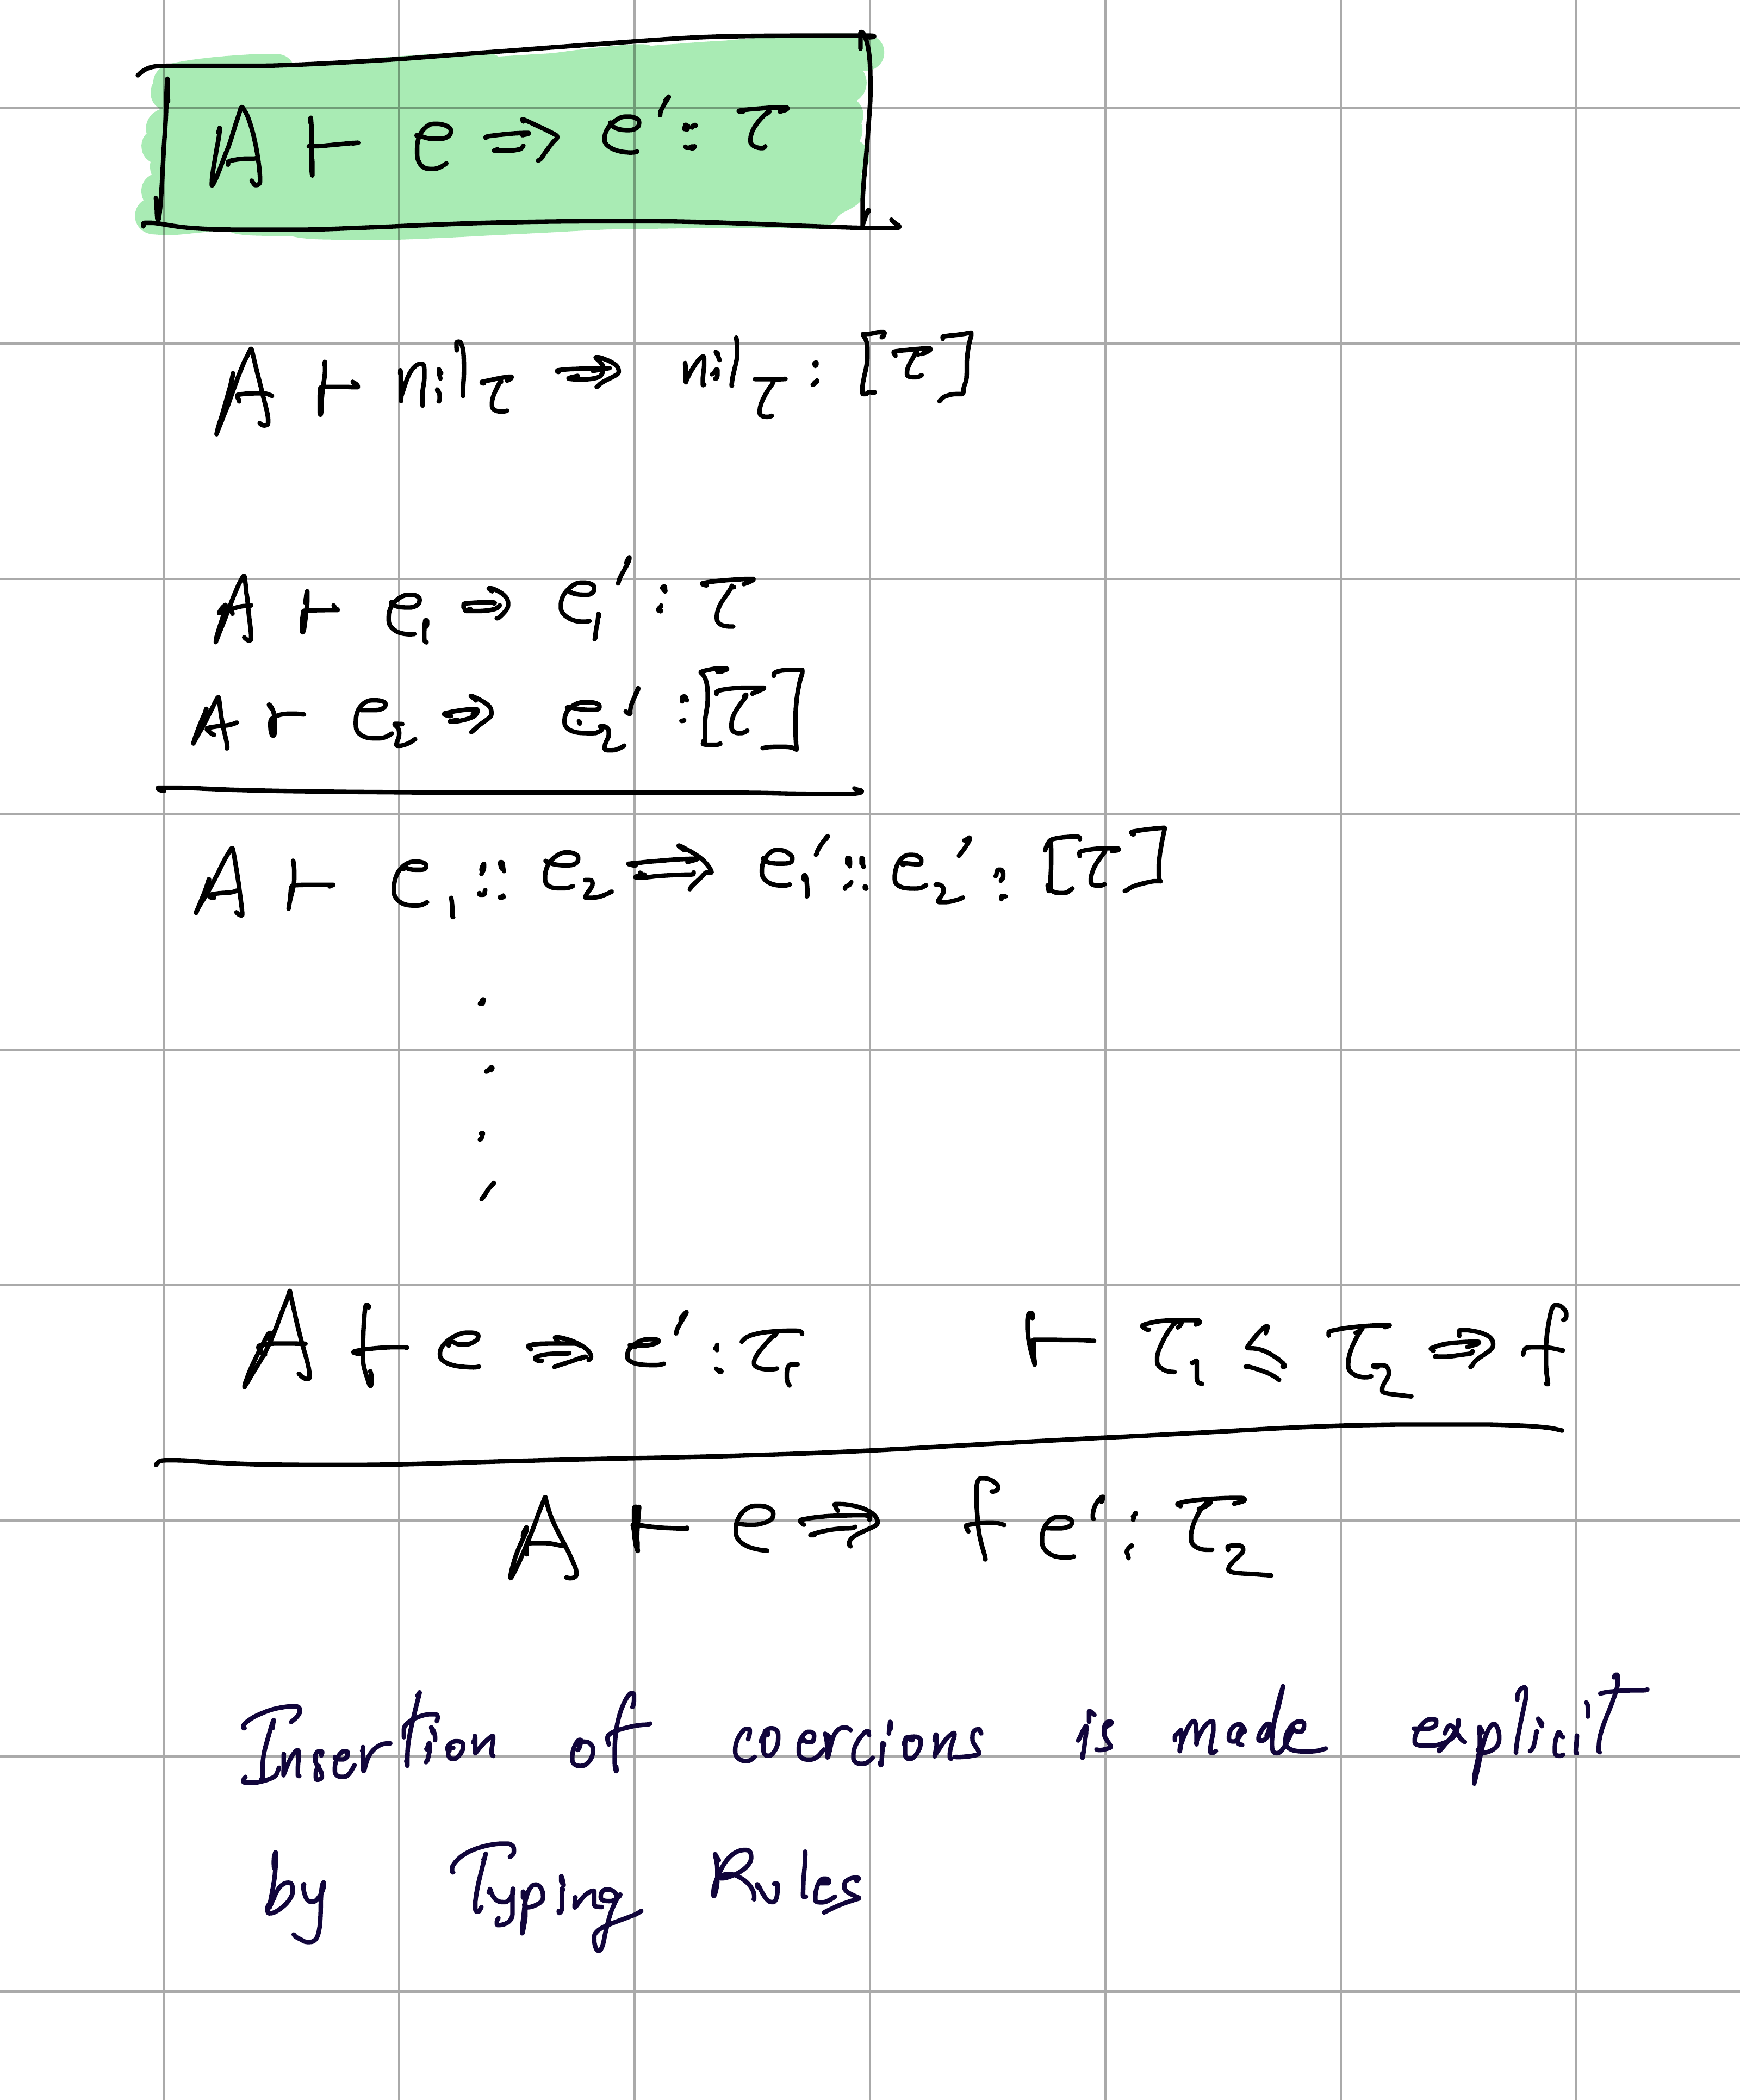 A ⊢ e ⇒ e' : τ
A ⊢ nil_τ ⇒ nil_τ : [τ]
A ⊢ e₁ ⇒ e₁' : τ
A ⊢ e₂ ⇒ e₂' : [τ]
A ⊢ e₁ :: e₂ ⇒ e₁' :: e₂' : [τ]
A ⊢ e ⇒ e' : τ₁ ⊢ τ₁ ≤ τ₂ ⇒ f
A ⊢ e ⇒ f e' : τ₂
Insertion of coercions is made explicit
by Typing Rules